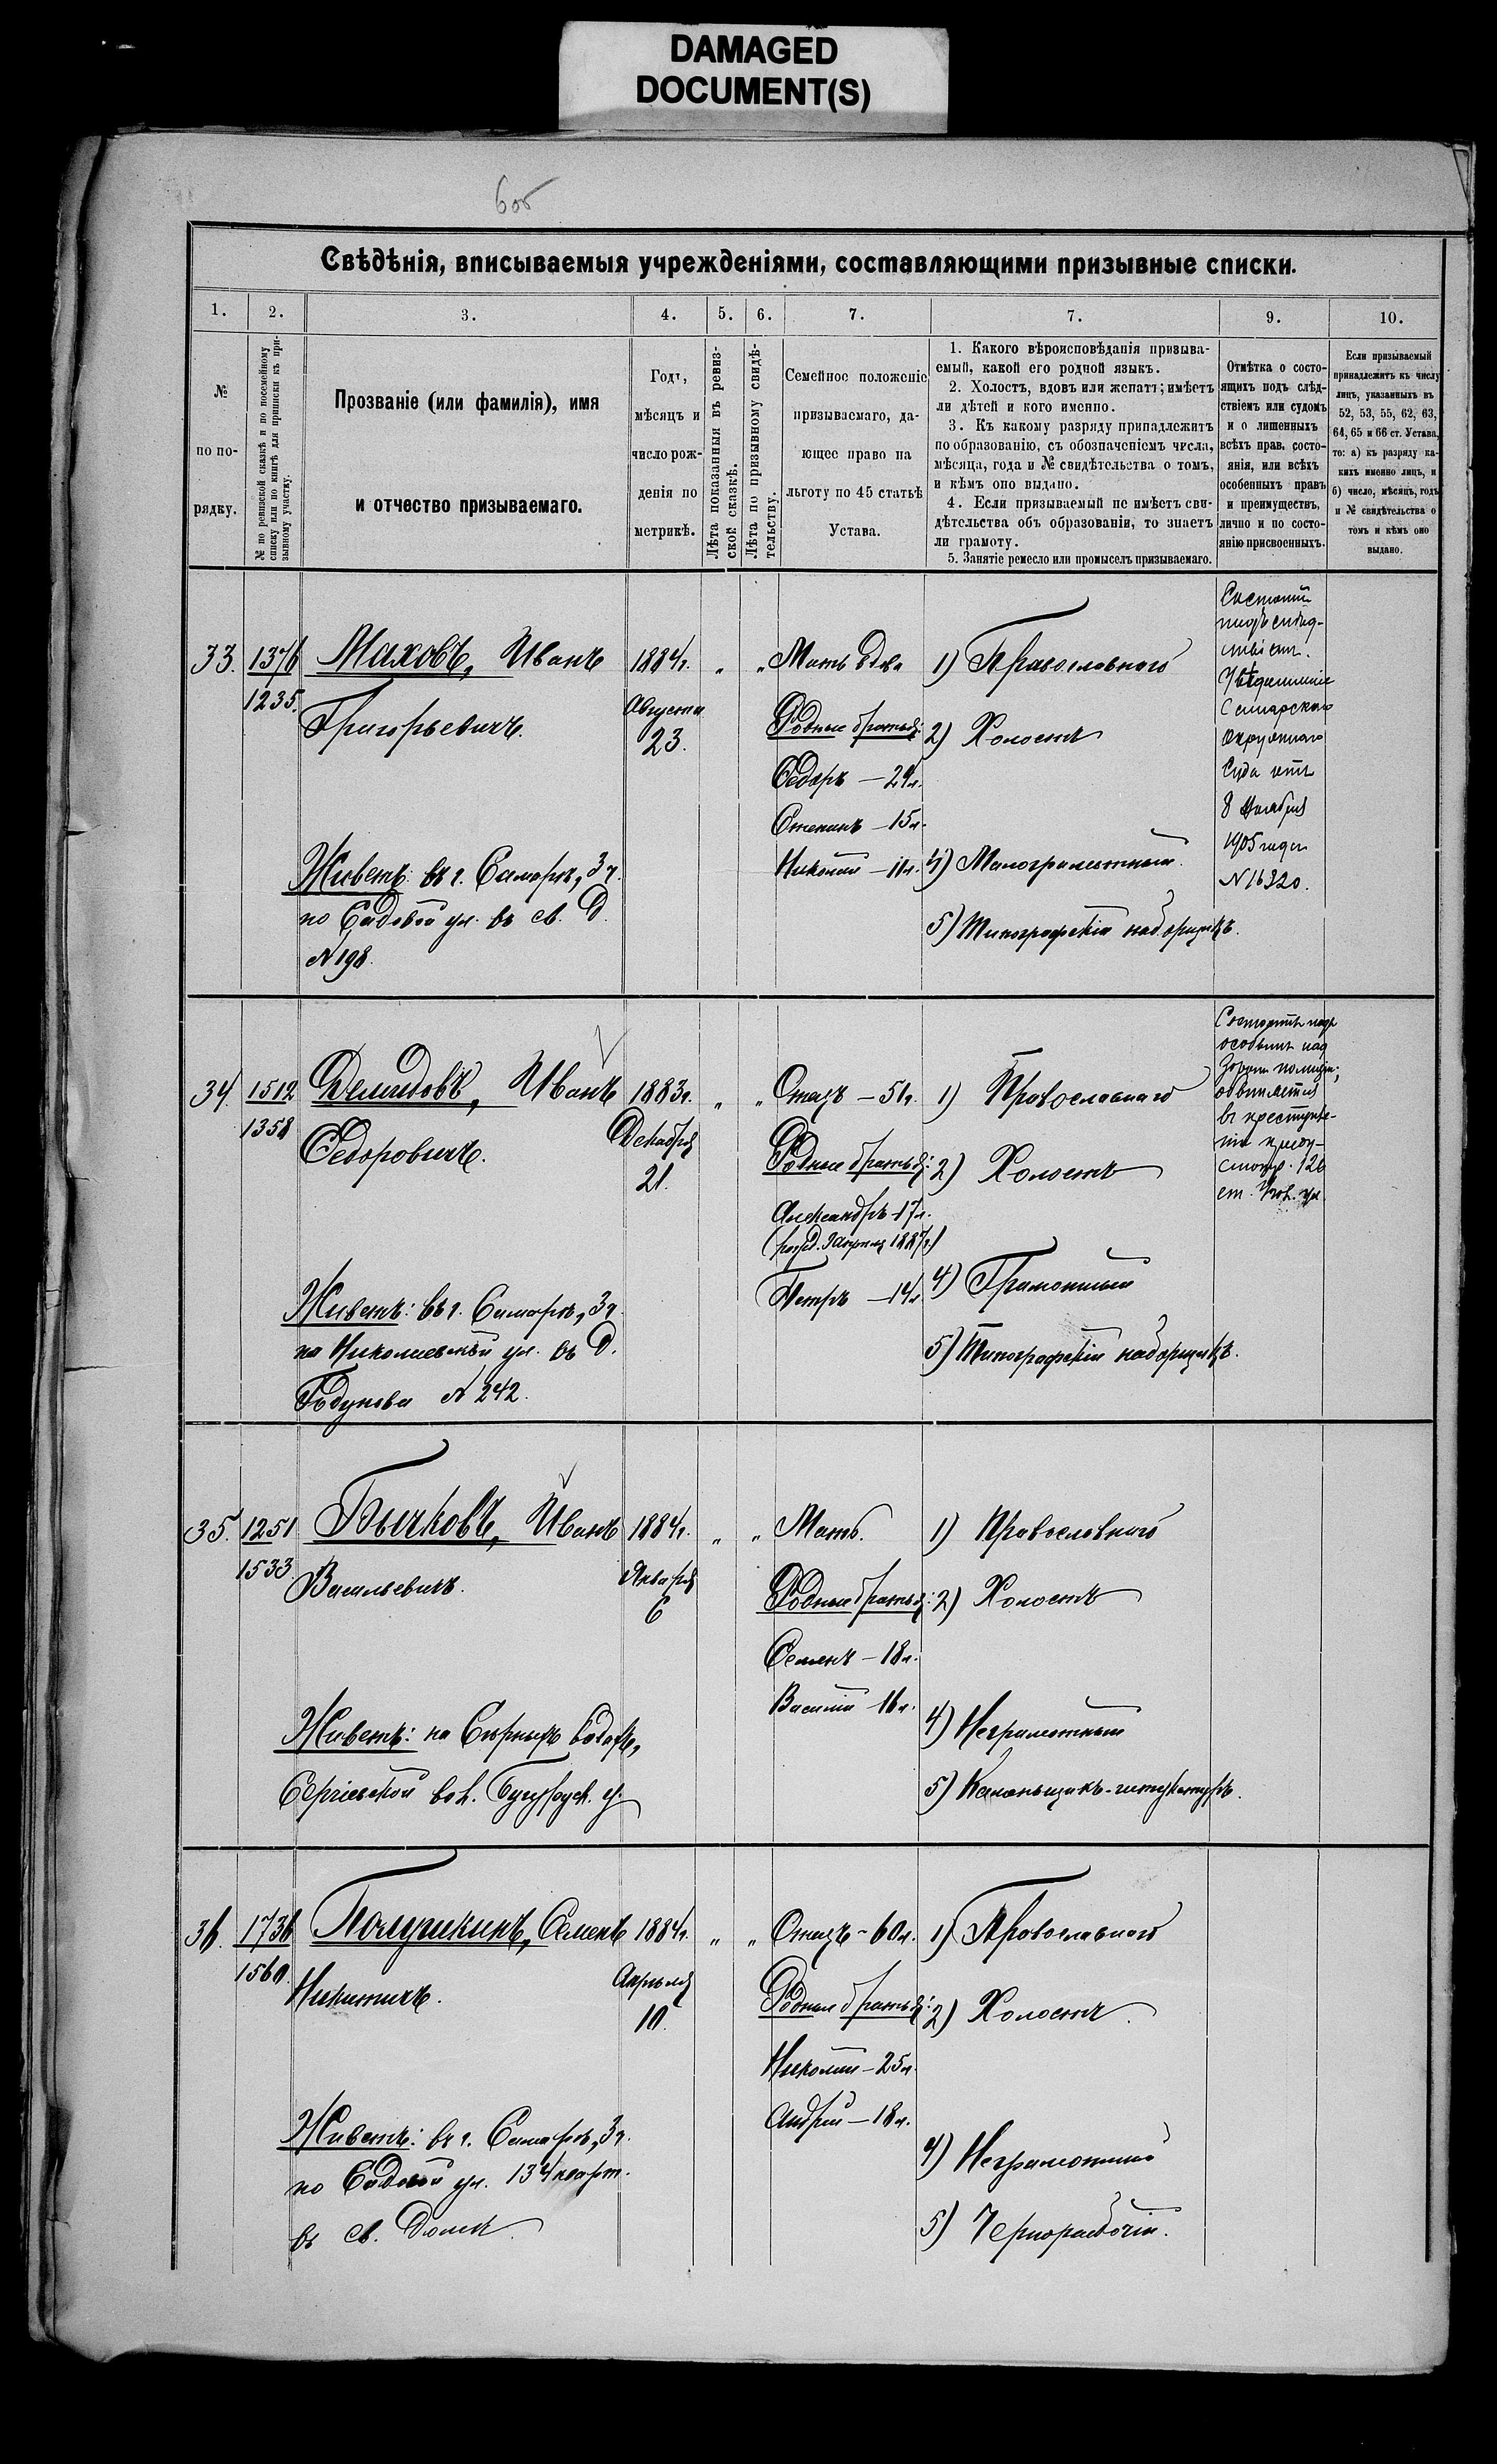 DAMAGED
DOCUMENT(S)
6об
Свѣдѣнія, вписываемыя учрежденіями, составляющими призывные списки.
1.
2.
3.
4.
5.
6.
7.
7.
9.
10.
№
по по-
рядку.
№ по ревизской сказкѣ и по посемейному
списку или по книгѣ для приписки къ при-
зывному участку.
Прозваніе (или фамилія), имя
и отчество призываемаго.
Годъ,
мѣсяцъ и
число рож-
денія по
метрикѣ.
Лѣта показанныя въ ревиз-
ской сказкѣ.
Лѣта по призывному свидѣ-
тельству.
Семейное положеніе
призываемаго, да-
ющее право на
льготу по 45 статьѣ
Устава.
1. Какого вѣроисповѣданія призыва-
емый, какой его родной языкъ.
2. Холостъ, вдовъ или женатъ; имѣетъ
ли дѣтей и кого именно.
3. Къ какому разряду принадлежитъ
по образованію, съ обозначеніемъ числа,
мѣсяца, года и № свидѣтельства о томъ,
и кѣмъ оно выдано.
4. Если призываемый не имѣетъ сви-
дѣтельства объ образованіи, то знаетъ
ли грамоту.
5. Занятіе ремесло или промыселъ призываемаго.
Отмѣтка о состо-
ящихъ подъ слѣд-
ствіемъ или судомъ
и о лишенныхъ
всѣхъ прав. состо-
янія, или всѣхъ
особенныхъ правъ
и преимуществъ,
лично и по состо-
янію присвоенныхъ.
Если призываемый
принадлежитъ къ числу
лицъ, указанныхъ въ
52, 53, 55, 62, 63,
64, 65 и 66 ст. Устава,
то: а) къ разряду ка-
кихъ именно лицъ, и
б) число, мѣсяцъ, годъ
и № свидѣтельства о
томъ и кѣмъ оно
выдано.
33.
1376
1235.
Маховъ, Иванъ
Григорьевичъ.
Живетъ: въ г. Самарѣ, 3 ч.
по Садовой ул. въ св. д.
№ 198.
1884 г.
Августа
23.
"
"
Мать вдова
Родные братья:
Ѳедоръ – 24 л.
Степанъ – 15 л.
Николай – 11 л.
1) Православнаго
2) Холостъ
4) Малограмотный.
5) Типографскій наборщикъ.
Состоитъ
подъ слѣд-
ствіем.
Увѣдомленіе
Самарскаго
Окружнаго
Суда отъ
8 Ноября
1905 года
№ 16320.
34.
1512
1358
Демидовъ, Иванъ
Ѳедоровичъ.
Живетъ: въ г. Самарѣ, 3 ч.
на Николаевской ул. въ д.
Годунова № 242.
1883 г.
Декабря
21.
"
"
Отецъ – 51 г.
Родные братья:
Александръ – 17 л.
(рожд. Апрѣля 1887 г.)
Петръ – 14 л.
1) Православнаго
2) Холостъ
4) Грамотный
5) Типографскій наборщикъ.
Состоитъ подъ
особымъ над
зоромъ полиціи;
обвиняется
въ преступле-
ніи преду-
смотр. 126
ст. Угол. ул.
35.
1251
1533.
Бычковъ, Иванъ
Васильевичъ.
Живетъ: на Сѣрныхъ водахъ,
Сергіевской вол. Бугурусл. у.
1884 г.
Января
6
"
"
Мать.
Родные братья:
Семенъ – 18 л.
Василій 16 л.
1) Православнаго
2) Холостъ
4) Неграмотный
5) Каменьщикъ-штукатуръ.
36.
1736
1560.
Полушкинъ, Семенъ
Никитичъ.
Живетъ: въ г. Самарѣ, 3 ч.
по Садовой ул. 134 кварт.
въ св. домѣ
1884 г.
Апрѣля
10.
"
"
Отецъ – 60 л.
Родные братья:
Николай – 25 л.
Андрей – 18 л.
1) Православнаго
2) Холостъ.
4) Неграмотный
5) Чернорабочій.